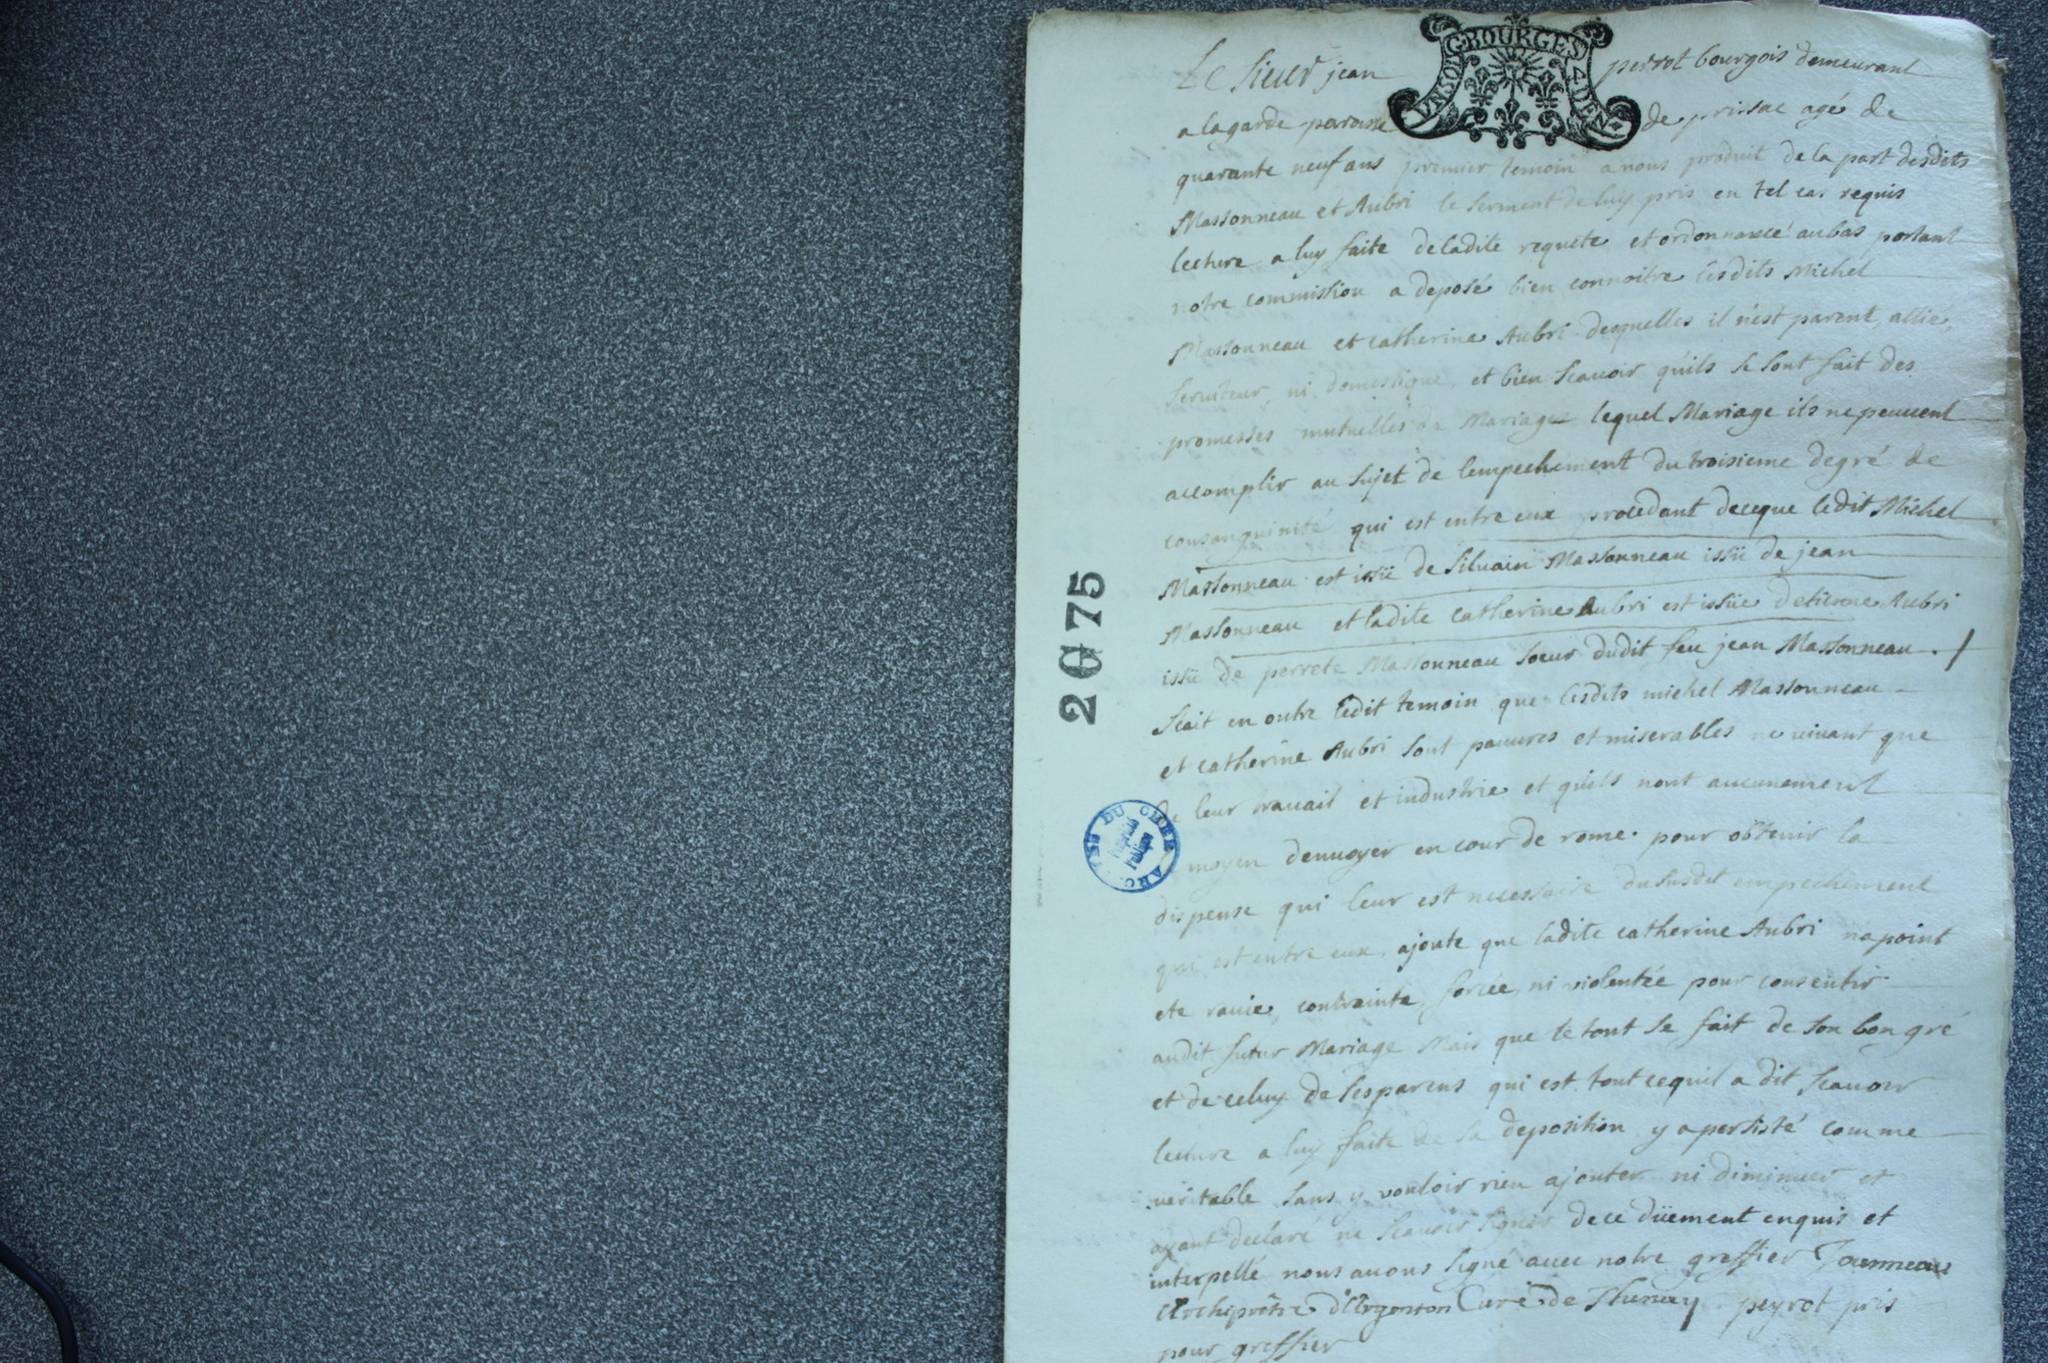 GBOURGES
UNSOL
4DEN.
Le sieur jean perrot bourgois demeurant
a la garde paroisse de prissac agé de
quarante neuf ans premier temoin a nous produit de la part desdits
Massonneau et Aubri le serment de luy pris en tel cas requis
lecture a luy faite de ladite requete et ordonnance au bas portant
notre commission a deposé bien connoitre lesdits Michel
Massonneau et catherine Aubri desquelles il n'est parent, allie,
serviteur, ni domestique, et bien scauoir qu'ils se sont fait des
promesses mutuelles de Mariage lequel Mariage ils ne peuuent
accomplir au sujet de l'empechement du troisieme degré de
consanguinité qui est entre eux procedant de ce que ledit Michel
Massonneau est issü de Siluain Massonneau issü de jean
Massonneau et ladite catherine Aubri est issüe detienne Aubri
issü de perrete Massonneau soeur dudit feu jean Massonneau . /
scait en outre ledit temoin que lesdits michel Massonneau
et catherine Aubri sont pauures et miserables ne uiuant que
de leur trauail et industrie et qu'ils nont aucunement
moyen denuoyer en cour de rome pour obtenir la
dispense qui leur est necessaire du susdit empechement
qui est entre eux, ajoute que ladite catherine Aubri na point
ete rauie, contrainte, forcée, ni violentée pour consentir
audit futur Mariage Mais que le tout se fait de son bon gré
et de celuy de ses parens qui est tout ce quil a dit scauoir
lecture a luy faite de sa deposition y a persisté comme
ueritable sans y vouloir rien ajouter ni diminuer et
ayant declaré ne scauoir signer de ce düement enquis et
interpellé nous auons signé auec notre greffier
Archiprêtre d'Argenton Curé de Thenay peyrot pris
pour greffier
2G 75
ARCHIVES DU CHER